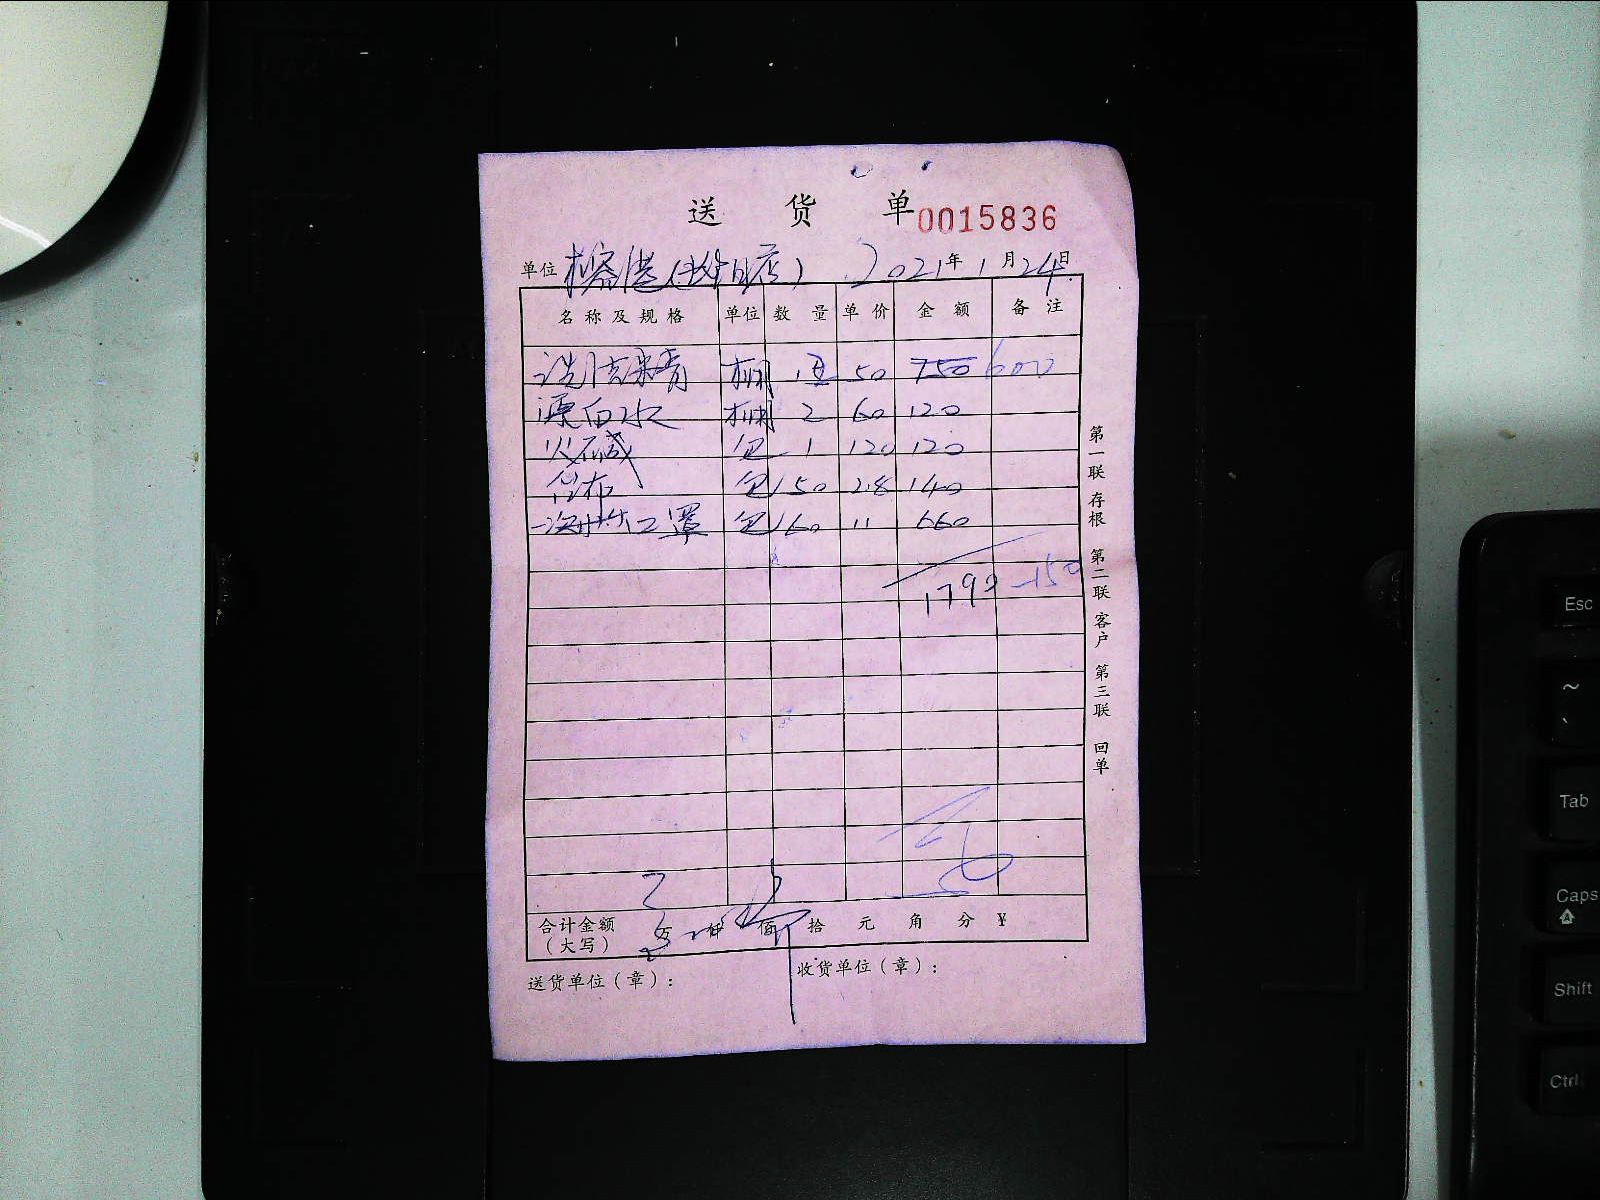 送 货 单 0015836
单位 榕港( 店) 2021年 1月24日
名称及规格 单位 数量 单价 金额 备注
洗洁 桶 50 750 600
漂白水 桶 2 60 120
火碱 包 1 120 120
包 50 2.8 140
一次性口罩 包 60 11 660
1790 -150
合计金额 万 仟 佰 拾 元 角 分 ¥
(大写)
送货单位(章): 收货单位(章):
第一联 存根 第二联 客户 第三联 回单
Esc
~
`
Tab
Caps
Shift
Ctrl